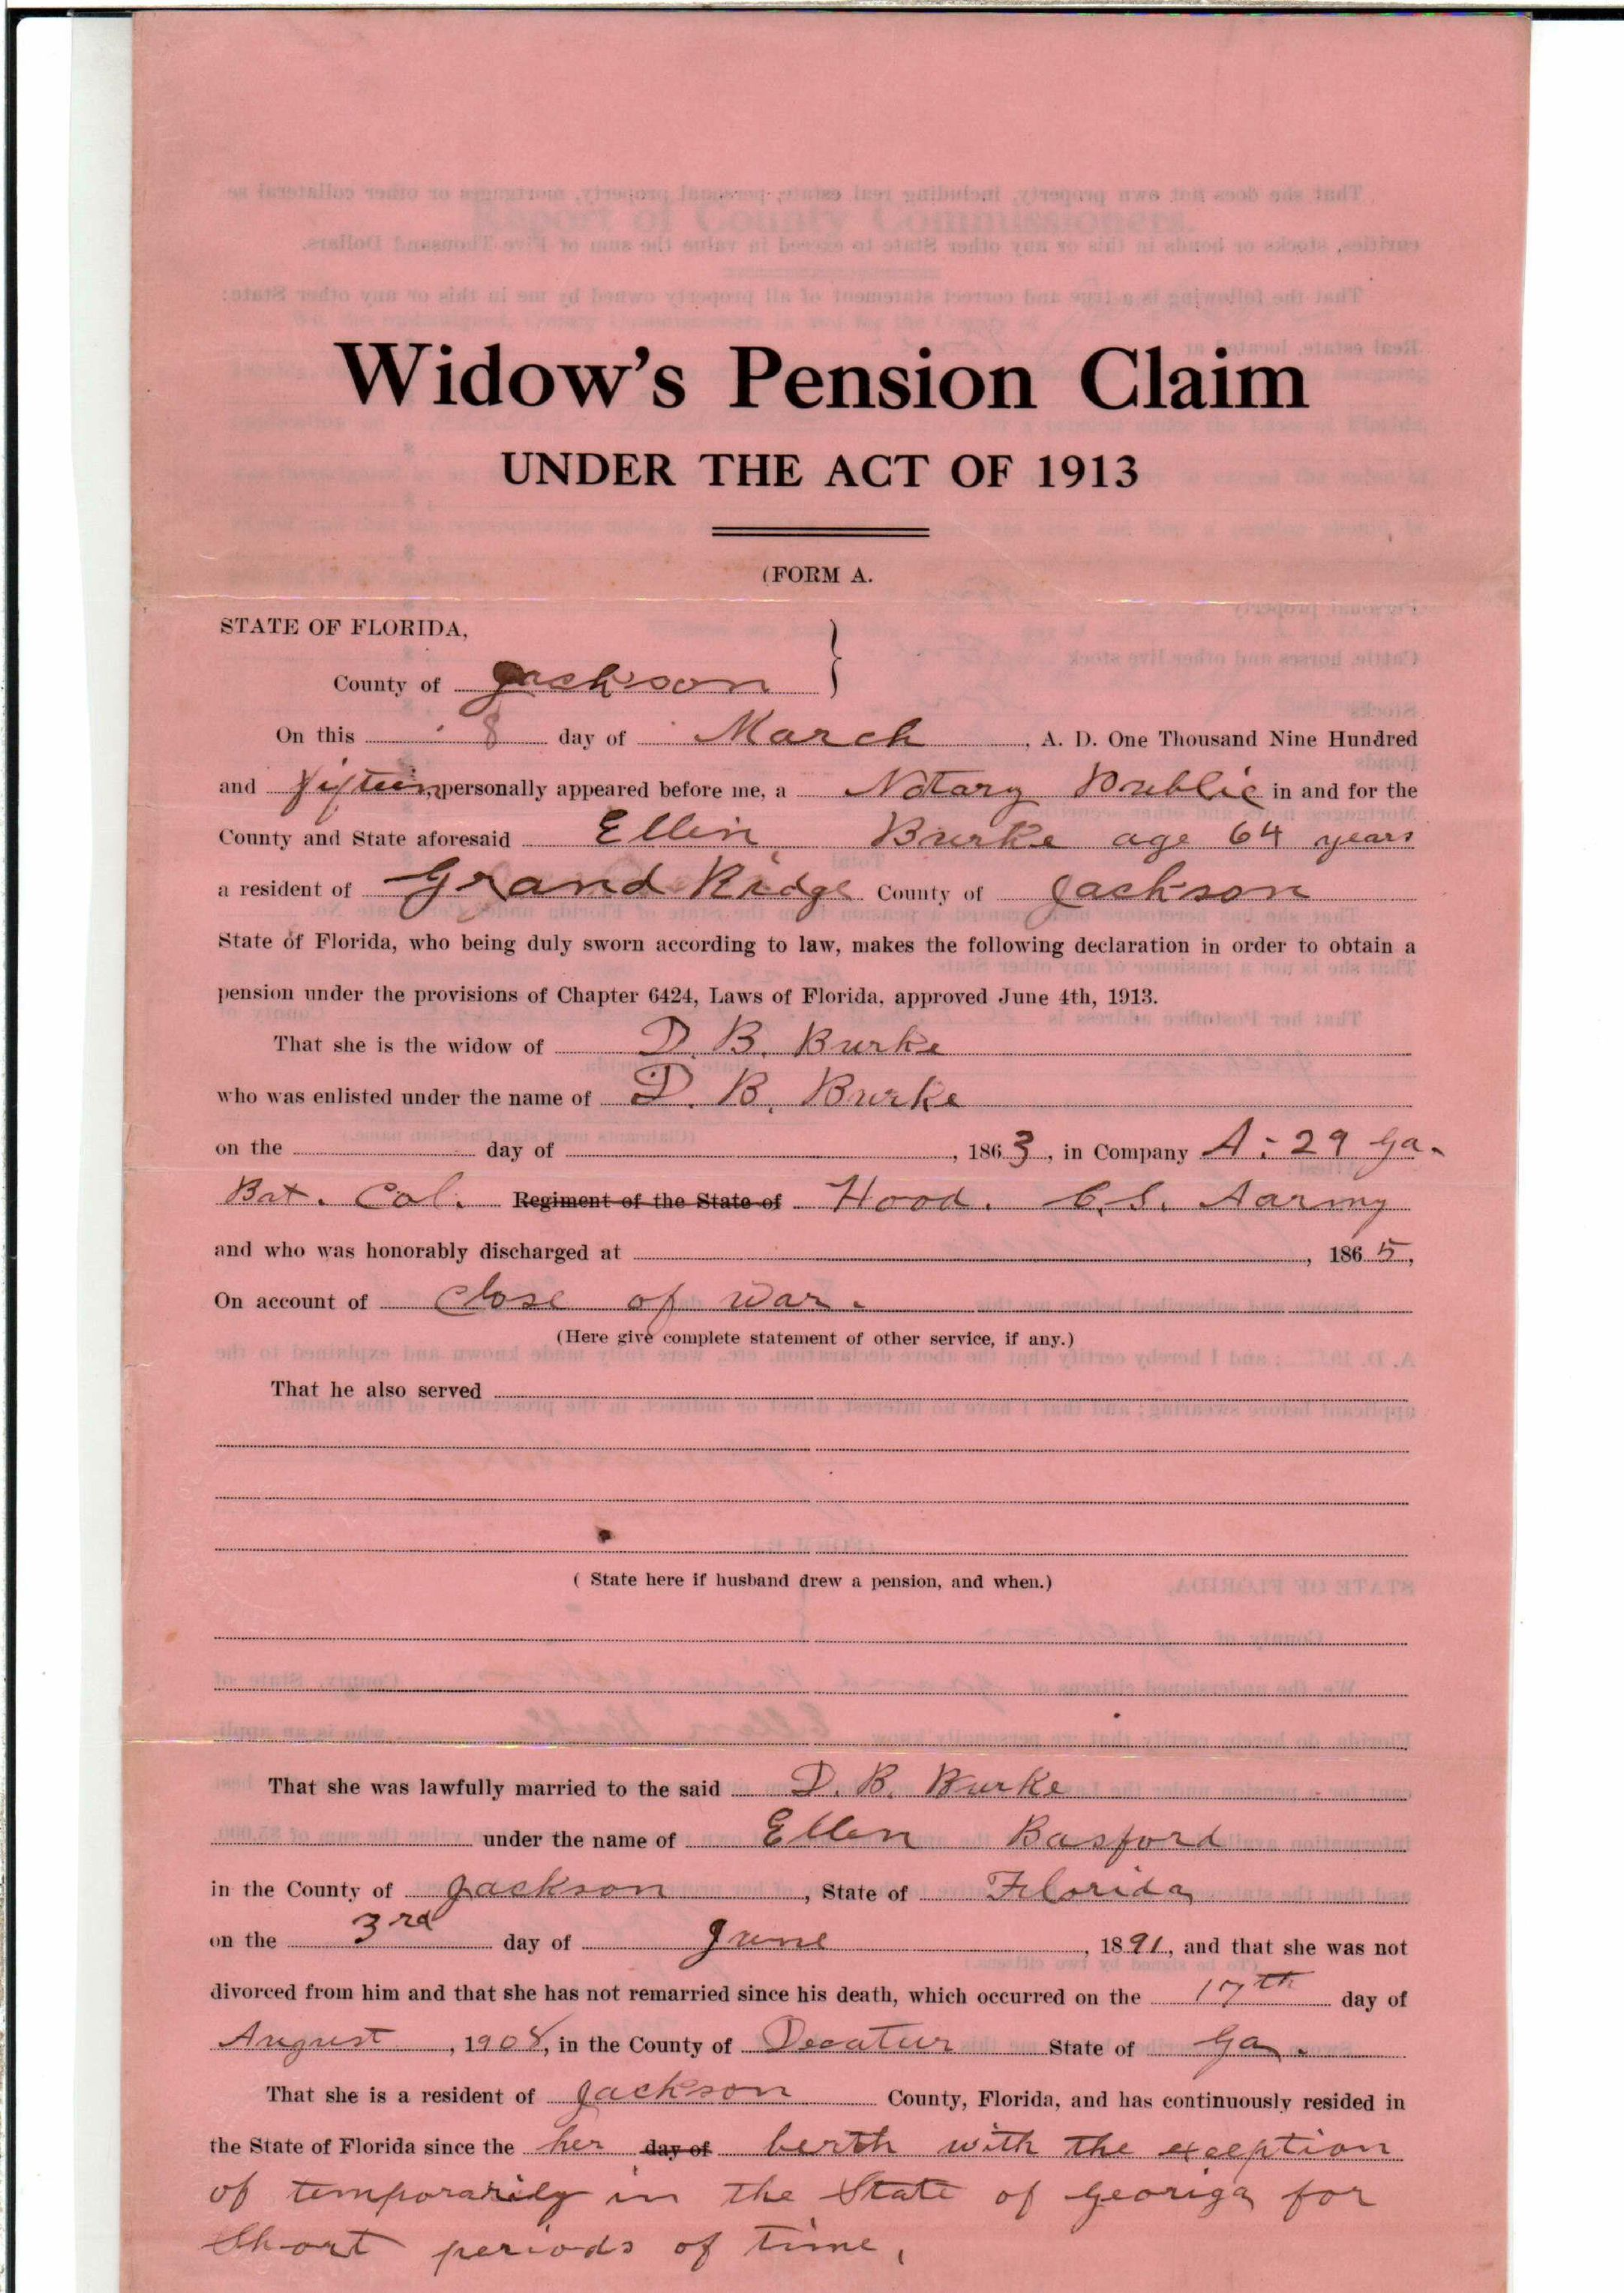 Widow's Pension Claim
UNDER THE ACT OF 1913
(FORM A.
STATE OF FLORIDA,
County of Jackson }
On this 8 day of March, A. D. One Thousand Nine Hundred
and fifteen, personally appeared before me, a Notary Public in and for the
County and State aforesaid Ellin Burke age 64 years
a resident of Grand Ridge County of Jackson
State of Florida, who being duly sworn according to law, makes the following declaration in order to obtain a
pension under the provisions of Chapter 6424, Laws of Florida, approved June 4th, 1913.
That she is the widow of D. B. Burke
who was enlisted under the name of D. B. Burke
on the day of , 1863, in Company A. 29 Ga.
Bat. Cal. Regiment of the State of Hood. C.S. Aarmy
and who was honorably discharged at , 1865,
On account of Close of war.
(Here give complete statement of other service, if any.)
That he also served
( State here if husband drew a pension, and when.)
That she was lawfully married to the said D. B. Burke
under the name of Ellen Basford
in the County of Jackson, State of Florida
on the 3rd day of June, 1891, and that she was not
divorced from him and that she has not remarried since his death, which occurred on the 17th day of
August, 1908, in the County of Decatur State of Ga.
That she is a resident of Jackson County, Florida, and has continuously resided in
the State of Florida since the her day of berth with the exeption
of temporarily in the State of Georiga for
Short periods of time.